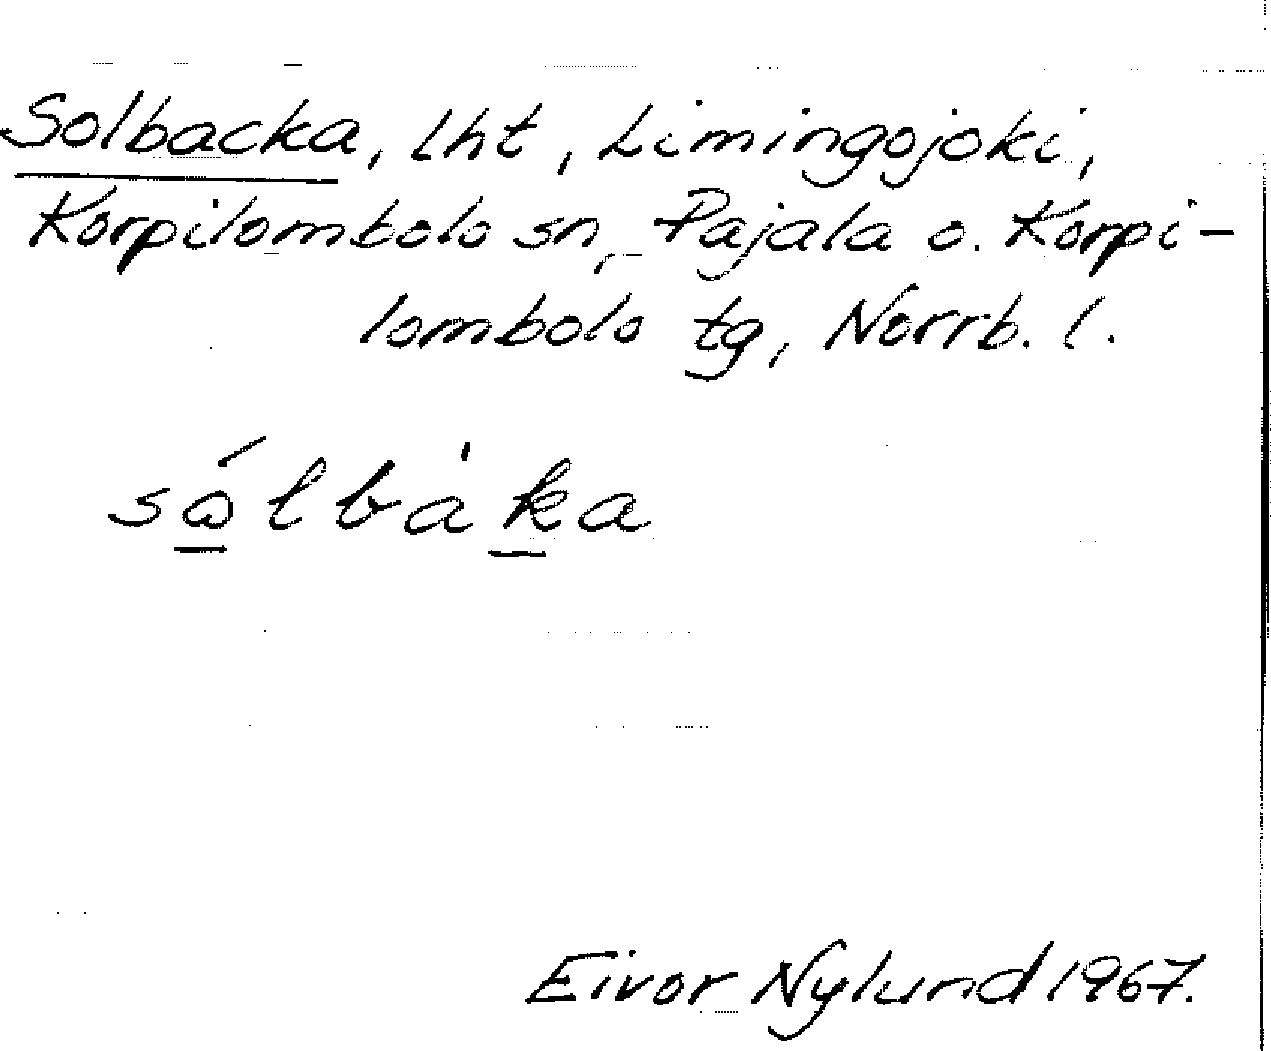 Solbacka, lht, Limingojoki,
Korpilombolo sn, Pajala o. Korpi-
lombolo tg, Norrb. l.
sǻlbàka
Eivor Nylund 1967.